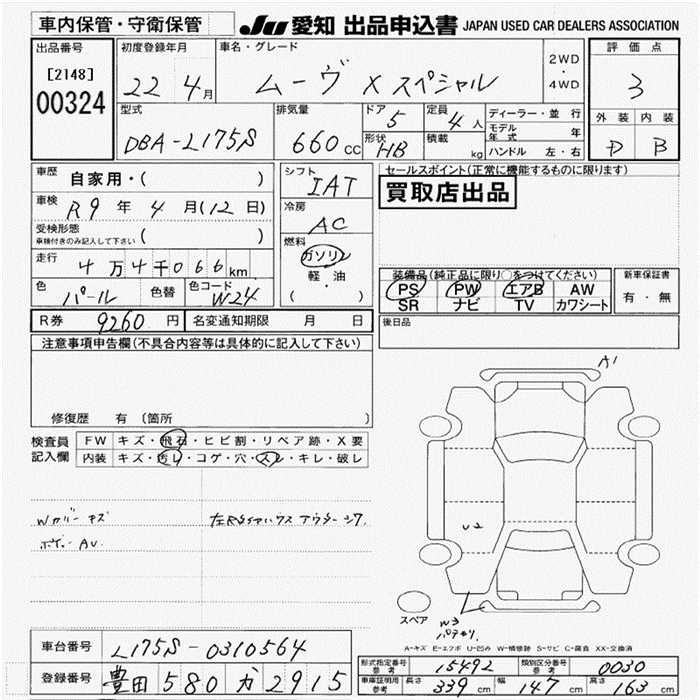 車内保管・守衛保管
JU 愛知 出品申込書 JAPAN USED CAR DEALERS ASSOCIATION
出品番号
[2148]
00324
初度登録年月
22 4月
車名・グレード
ムーヴ X スペシャル
2WD
・
4WD
評価点
3
型式
DBA-L175S
排気量
660 CC
ドア 5
形状 HB
定員 4人
積載 kg
ディーラー・並行
モデル年式 年
ハンドル 左・右
外装 内装
D B
車歴 自家用・( )
車検 R9年4月(12日)
受検形態
車検付きのみ記入して下さい ( )
走行 4万4千066km
色 パール 色替 色コード W24
シフト
IAT
冷房
AC
燃料
ガソリン
軽・油
( )
セールスポイント(正常に機能するものに限ります)
買取店出品
装備品(純正品に限り○をつけてください)
PS PW エアB AW
SR ナビ TV カワシート
新車保証書
有・無
R券 9260円 名変通知期限 月 日
後日品
注意事項申告欄(不具合内容等は具体的に記入して下さい)
修復歴 有 (箇所 )
検査員
記入欄
FW キズ・飛石・ヒビ割・リペア跡・X要
内装 キズ・汚レ・コゲ・穴・スレ・キレ・破レ
Wカバーキズ
ボディーAU
A1
U2
W3
スペア
A-キズ E-エクボ U-凹み W-補修跡 S-サビ C-腐食 XX-交換済
車台番号 L175S-0310564
登録番号 豊田 580 か 2915
型式指定番号 参考 15492 類別区分番号 参考 0030
車庫証明用 参考 長さ 339cm 幅 147cm 高さ 163cm